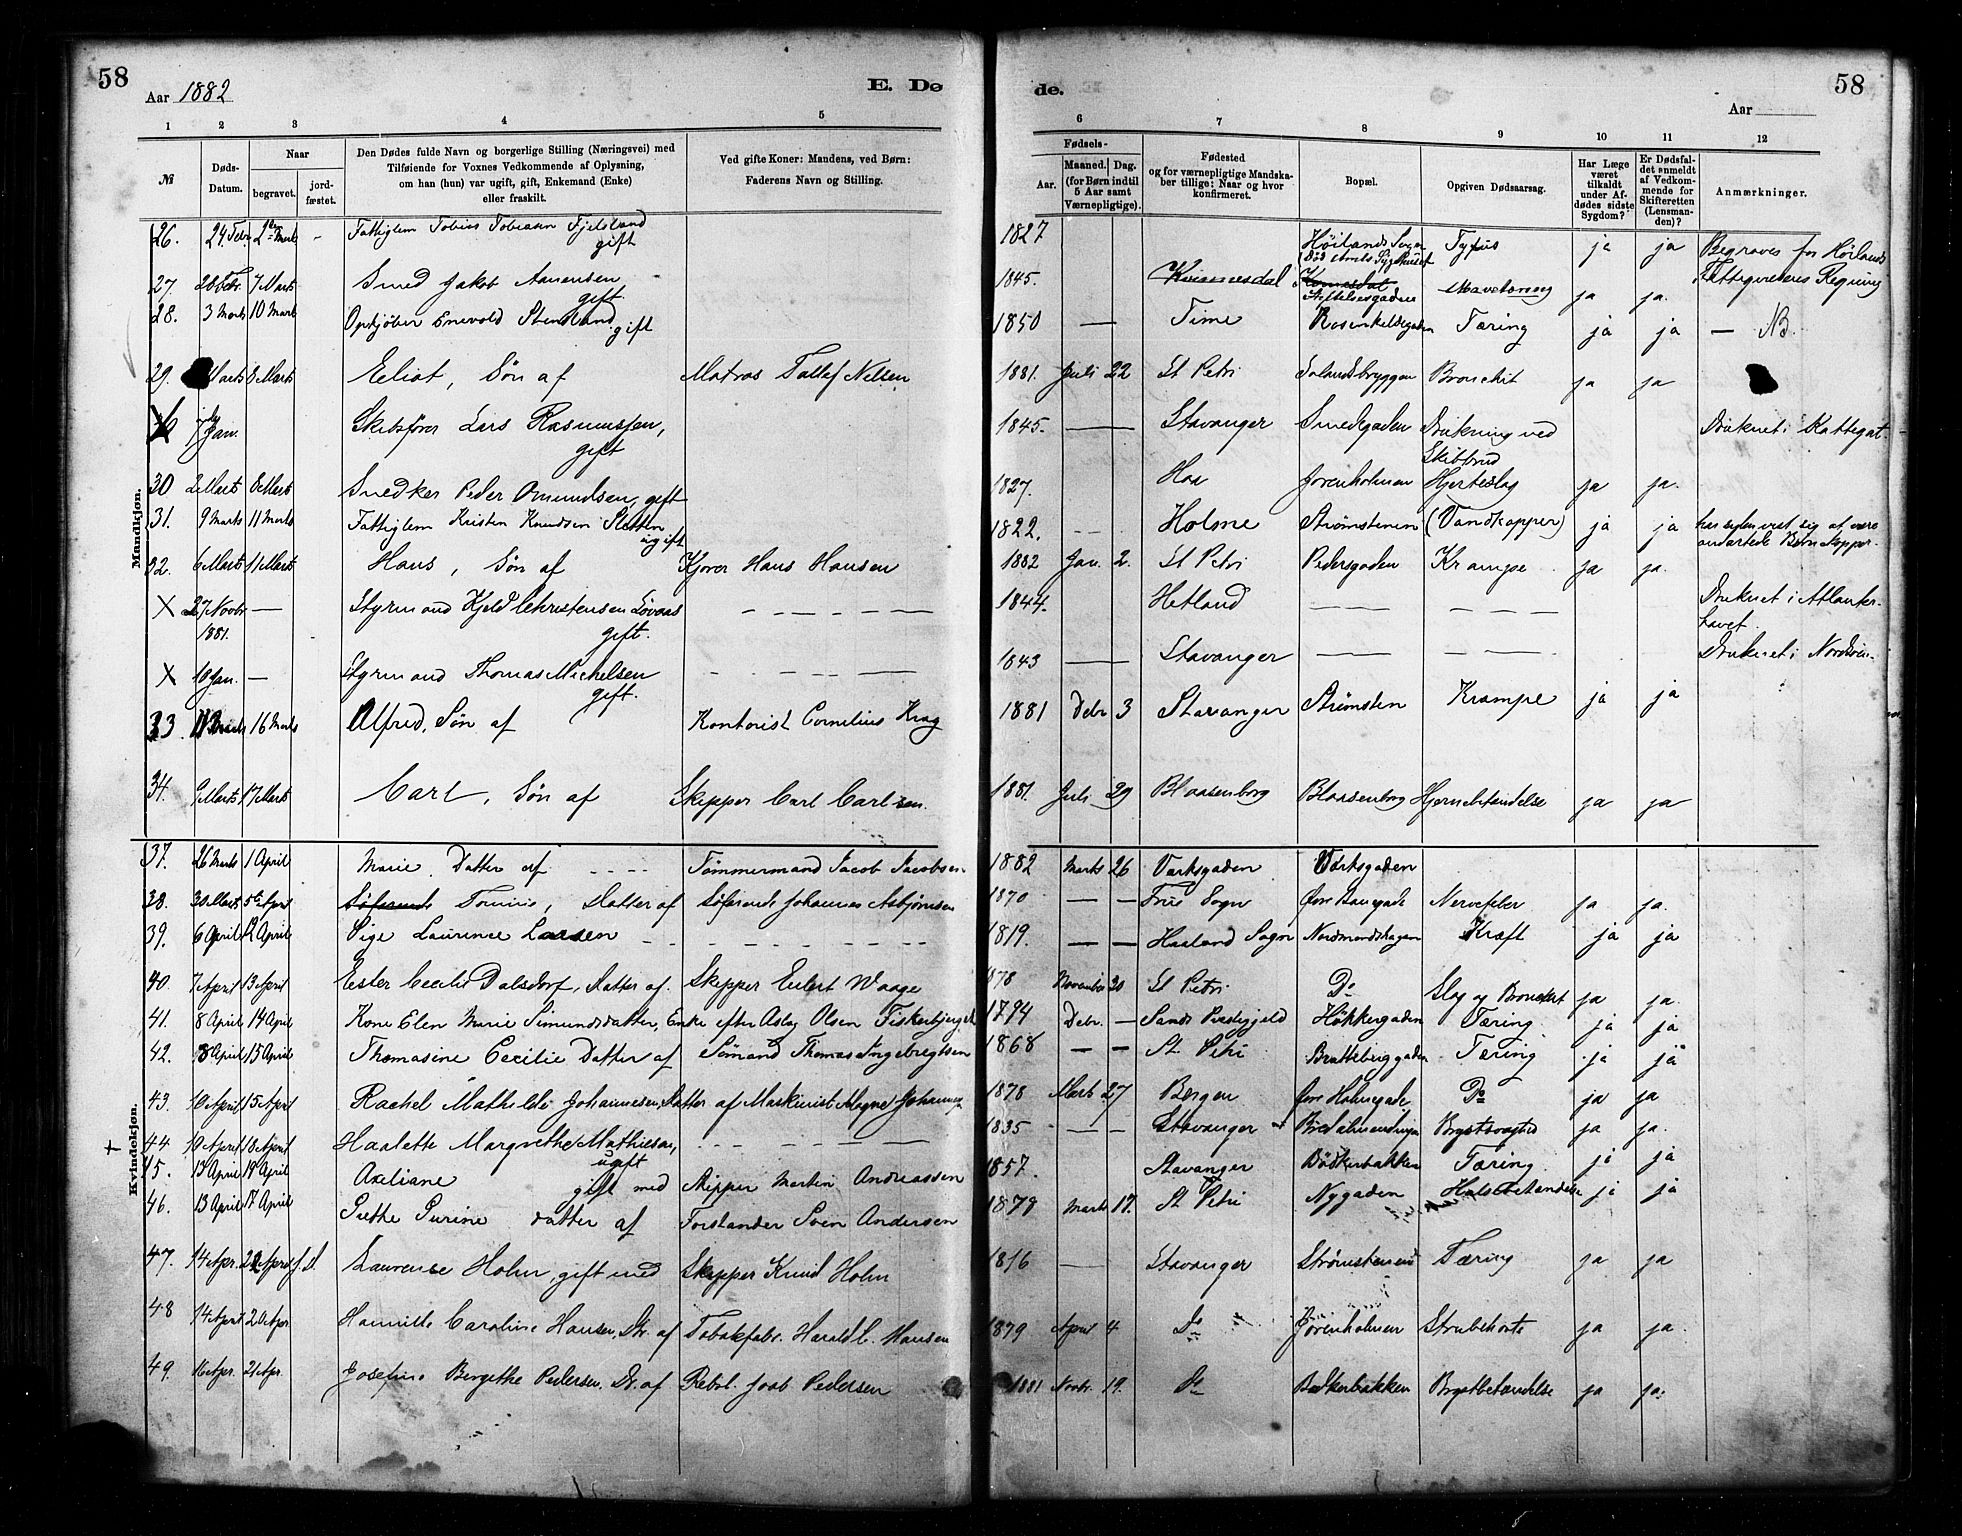 58
Aar 1882
E. Dø
de.
Aar
58
1 2 3 4 5 6 7 8 9 10 11 12
№
Døds-Datum.
Naar
begravet.
jord-fæstet.
Den Dødes fulde Navn og borgerlige Stilling (Næringsvei) med
Tilføiende for Voxnes Vedkommende af Oplysning,
om han (hun) var ugift, gift, Enkemand (Enke)
eller fraskilt.
Ved gifte Koner: Mandens, ved Børn:
Faderens Navn og Stilling.
Fødsels-
Aar.
Maaned. Dag.
(for Børn indtil
5 Aar samt
Værnepligtige).
Fødested
og for værnepligtige Mandska-
ber tillige: Naar og hvor
konfirmeret.
Bopæl.
Opgiven Dødsaarsag.
Har Læge
været
tilkaldt
under Af-
dødes sidste
Sygdom?
Er Dødsfal-
det anmeldt
af Vedkom-
mende for
Skifteretten
(Lensman-
den)?
Anmærkninger.
Mandkjøn.
26. 24 Febr 2den Marts - Fattiglem Tobias Tobiasen Fjelsland gift 1827 Høilands Sogn Tyfus ja ja Begraves for Høilands Fattigvæsens Regning
27. 28 Febr. 7 Marts Smed Jakob Aanensen gift 1845. Kvinesdal Stiftelsesgaden Mavetæring ja ja.
28. 3 Marts 10 Marts Opkjøber Enevold Stensland gift 1850 — Time Rosenkildegaden Tæring ja ja — NB.
29. Marts 8 Marts Eliot, Søn af Matros Tollef Nelsen 1881. Juli 22 St Petri Jolandsbryggen Bronchit ja ja
7 Jan. Skibsfører Lars Rasmussen, gift 1845. — Stavanger Smedgaden Drukning ved Skibbrud Druknet i Kattegat
30 2 Marts 8 Marts Snedker Peder Omundsen, gift 1827. Haa Jorenholmen Hjerteslag ja ja.
31. 9 Marts 11 Marts Fattiglem Kristen Knudsen Sletten ugift 1822. -- Holme Strømstenen (Vandkopper) ja ja
32. 6 Marts 11 Marts Hans, Søn af Kjører Hans Hansen 1882 Jan. 2. St Petri Pedersgaden Krampe ja ja.
X 27 Novbr 1881. — Styrmand Kjeld Christensen Løvaas gift. — 1844. Hetland — — Druknet i Atlanter-havet.
X 18 Jan. — Styrmand Thomas Michelsen gift. — 1843 — Stavanger — — Druknet i Nordsøen
33 11 Marts 16 Marts Alfred, Søn af Kontorist Cornelius Krag 1881 Debr 3 Stavanger Strømsten Krampe ja ja
34. 9 Marts 17 Marts Carl, Søn af Skipper Carl Carlsen. 1881. Juli 29 Blaasenborg Blaasenborg Hjernebetendelse ja ja
Kvindekjøn.
37. 26 Marts 1 April Marie. Datter af Tømmermand Jacob Jacobsen 1882 Marts 26 Værksgaden Værksgaden
38. 30 Marts 5te April Søfarende Tomine, Datter af Søfarende Johannes Asbjørnsen 1870 — — Frue Sogn Øvre Banegade Nervefeber ja ja.
39. 6 April 12 April Pige Laurence Larsen — 1819. — — Haaland Sogn Nordmandshagen Kræft ja ja
40. 7 April 13 April Ester Cecilie Dalsdorf, Datter af. Skipper Eilert Waage 1878 November 20 St Petri Do Slag og Bronchit ja ja.
41. 8 April 14 April Kone Elen Marie Simundsdatter, Enke efter Aslag Olsen Fiskerbjerget 1794 Debr. — Sands Præstegjeld Høkkergaden Tæring ja ja
42. 8 April 15 April Thomasine Cecilie Datter af Sømand Thomas Ingebregtsen 1868 — — St. Petri Bratteberggaden Tæring ja ja
43. 10 April 15 April Rachel Mathilde Johannesen, Datter af Maskinist Magne Johannesen 1878 Marts 27 Bergen Øvre Holmegade Do ja ja
+ 44 10 April 18 April Haalette Margrethe Mathiesen, ugift — 1835 — — Stavanger Bredalmendingen Brystsvaghed ja ja.
45. 13 April 18 April Axeliane gift med Skipper Morten Andreassen 1857. Stavanger Bødkerbakken Tæring ja ja
46. 13 April 17 April Grethe Surine datter af Forstander Sven Andersen 1879 Marts 17. St Petri Nygaden Halsbetændelse ja ja
47. 14 Apr. 22 April Laurense Holm, gift med Skipper Knud Holm 1816 — Stavanger Strømstenen Tæring ja ja
48 14 April 20 Apr. Hamitte Caroline Hansen, Dtr. af Tobakfabr. Harald C. Hansen 1879 April 4 Do Jørenholmen Strubehoste ja ja.
49. 16 Apr. 21 Apr. Josefine Bergithe Pedersen, Dt. af Rebsl. Joab Pedersen 1881 Novbr. 19. do Bødkerbakken Brystbetændelse ja ja.